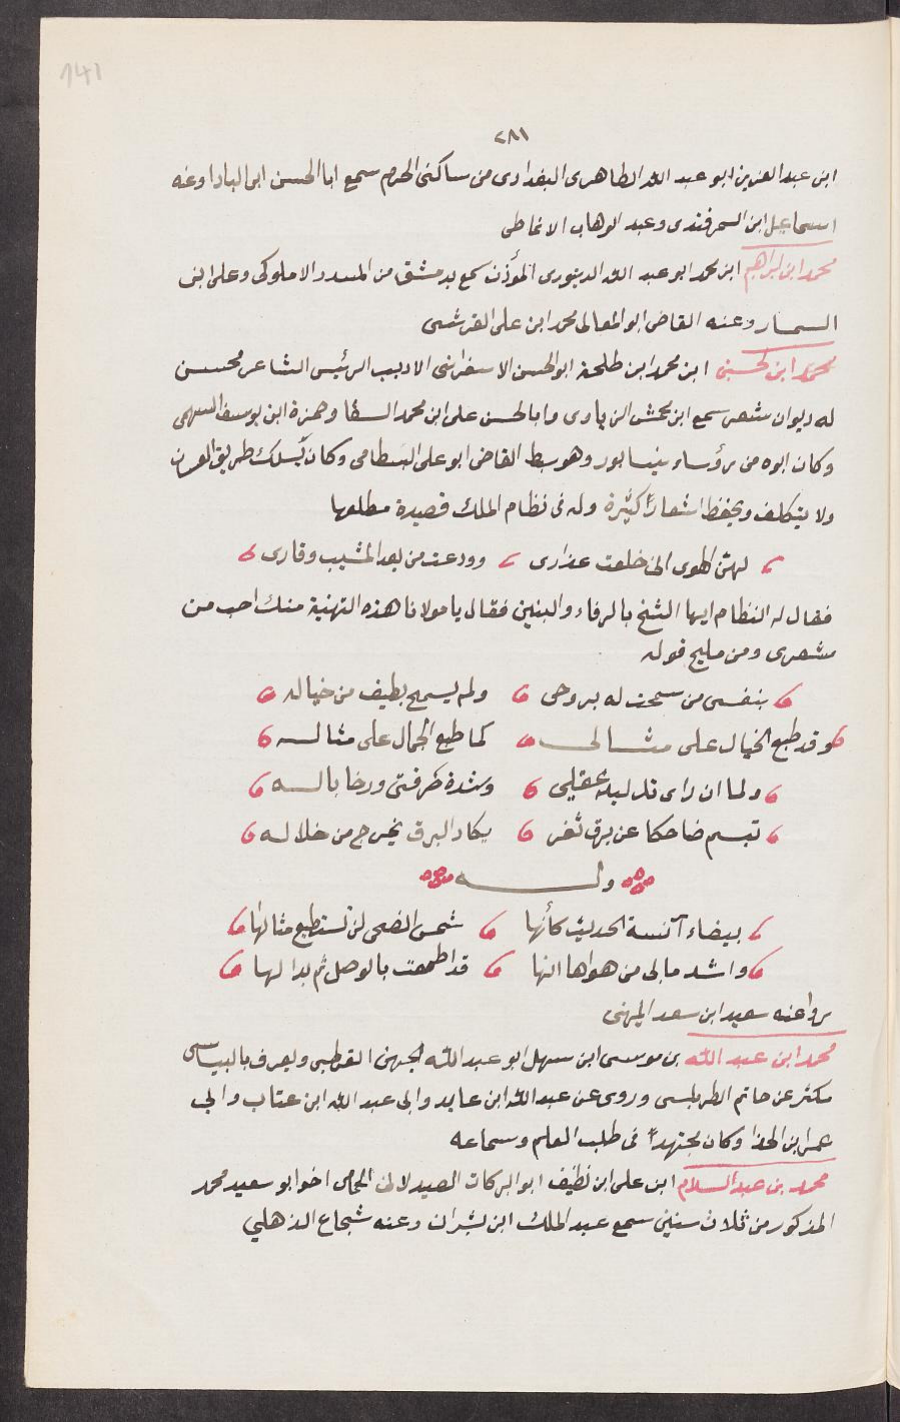 141
٢٨١
ابن عبد العزيز ابو عبد الله الطاهرى البغدادى من ساكنى الحرم سمع ابا الحسن ابن الباداوعنه
اسماعيل ابن السمرقندى وعبد الوهاب الانماطى
محمد ابن ابراهيم ابن محمد ابو عبد الله الدينورى المؤذن سمع بدمشق من المسدد الاملوكى وعلى ابن
السمسار وعنه القاضى ابو المعالى محمد ابن على القرشى
محمد ابن الحسين ابن محمد ابن طلحة ابو الحسن الاسفرائنى الاديب الرئيس الشاعر محسن
له ديوان شعر سمع ابن محمش الزيادى وابا الحسن على ابن محمد السقا وحمزة ابن يوسف السهمى
وكان ابوه من رؤساء نيسابور وهو سبط القاضى ابو على البسطامى وكان يسلك طريق العرب
ولا يتكلف ويحفظ اشعاراً كثيرة وله فى نظام الملك قصيدة مطلعها
ليهن الهوى انى خلعت عذارى وودعت من بعد المشيب وقارى
فقال له النظام ايها الشيخ بالرفاء والبنين فقال يا مولانا هذه التهنية منك احب من
شعرى ومن مليح قوله
بنفسى من سمحت له بروحى ولم يسمح بطيف من خياله
وقد طبع الخيال على مثالى كما طبع الجمال على مثاله
ولما ان راى تدليه عقلى وشدة حرقتى ورخا باله
تبسم ضاحكا عن برق ثغر يكاد البرق يخرج من خلاله
وله
بيضاء آنسة الحديث كأنها شمس الضحى لن تستطيع مثالها
واشد ما بى من هواها انها قد اطمعت بالوصل ثم بدا لها
روا عنه سعيد ابن سعد الميهنى
محمد ابن عبد الله بن موسى ابن سهل ابو عبد الله الجهنى القرطبى ويعرف بالبياسى
مكثر عن حاتم الطرابلسى وروى عن عبد الله ابن عابد وابى عبد الله ابن عتاب وابى
عمر ابن الحذا وكان مجتهداً فى طلب العلم وسماعه
محمد بن عبد السلام ابن على ابن نظيف ابو البركات الصيدلانى الحمامى اخو ابو سعيد محمد
المذكور من ثلاث سنين سمع عبد الملك ابن بشران وعنه شجاع الذهلي